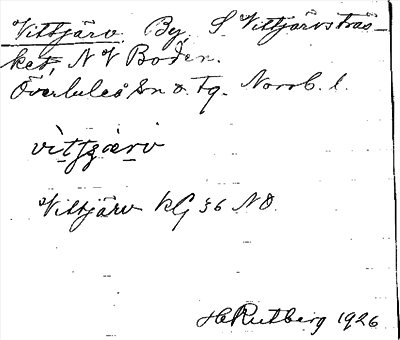 Vittjärv. By, S Vittjärvsträs-
ket, NV Boden.
Överluleå Sn o. Tg. Norrb. l.
vìtʃærv
Vittjärv KG 36 NO.
H Rutberg 1926